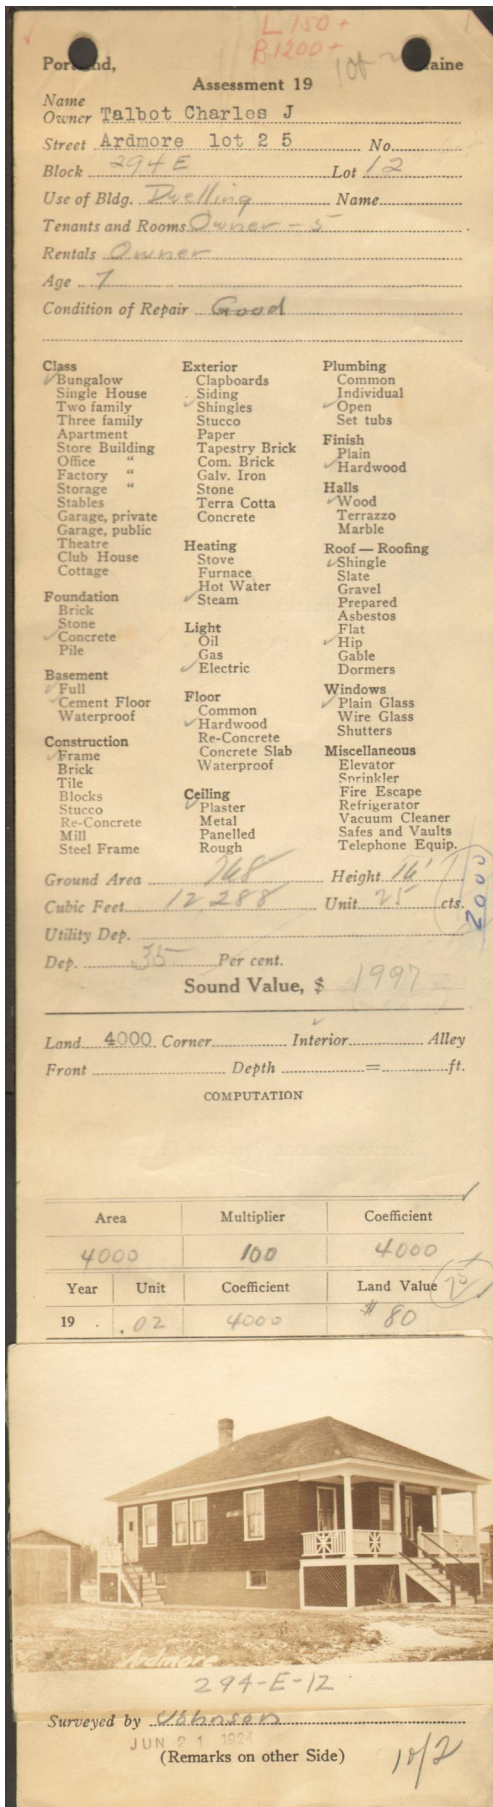 L 150+
B 1200+
Portland, Maine
Assessment 19
Name
Owner Talbot Charles J
Street Ardmore lot 2 5 No.
Block 294 E Lot 12
Use of Bldg. Dwelling Name
Tenants and Rooms Owner - 5
Rentals Owner
Age 7
Condition of Repair Good
Class
Bungalow
Single House
Two family
Three family
Apartment
Store Building
Office "
Factory "
Storage "
Stables
Garage, private
Garage, public
Theatre
Club House
Cottage
Foundation
Brick
Stone
Concrete
Pile
Basement
Full
Cement Floor
Waterproof
Construction
Frame
Brick
Tile
Blocks
Stucco
Re-Concrete
Mill
Steel Frame
Exterior
Clapboards
Siding
Shingles
Stucco
Paper
Tapestry Brick
Com. Brick
Galv. Iron
Stone
Terra Cotta
Concrete
Heating
Stove
Furnace
Hot Water
Steam
Light
Oil
Gas
Electric
Floor
Common
Hardwood
Re-Concrete
Concrete Slab
Waterproof
Ceiling
Plaster
Metal
Panelled
Rough
Plumbing
Common
Individual
Open
Set tubs
Finish
Plain
Hardwood
Halls
Wood
Terrazzo
Marble
Roof — Roofing
Shingle
Slate
Gravel
Prepared
Asbestos
Flat
Hip
Gable
Dormers
Windows
Plain Glass
Wire Glass
Shutters
Miscellaneous
Elevator
Sprinkler
Fire Escape
Refrigerator
Vacuum Cleaner
Safes and Vaults
Telephone Equip.
Ground Area 768 Height 16'
Cubic Feet 12,288 Unit 25 cts.
2000
Utility Dep.
Dep. 35 Per cent.
Sound Value, $ 1997
Land 4000 Corner Interior Alley
Front Depth = ft.
COMPUTATION
Area Multiplier Coefficient
4000 100 4000
Year Unit Coefficient Land Value
19 .02 4000 $80
Ardmore
294-E-12
Surveyed by Johnson
JUN 21 1924
(Remarks on other Side)
10/2